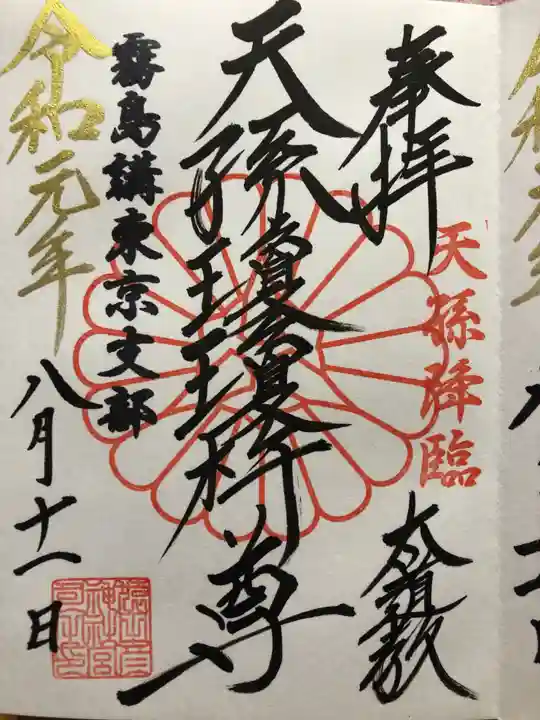 奉拝
天孫降臨
大道教
天孫瓊瓊杵尊
霧島講東京支部
令和元年
八月十一日